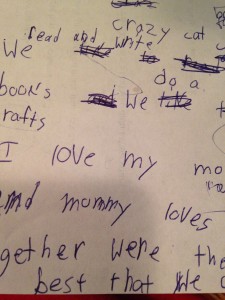 crazy cat
read and write
We
do a
books We
rafts
I love my mo
and mommy loves
ogether were the
best that we